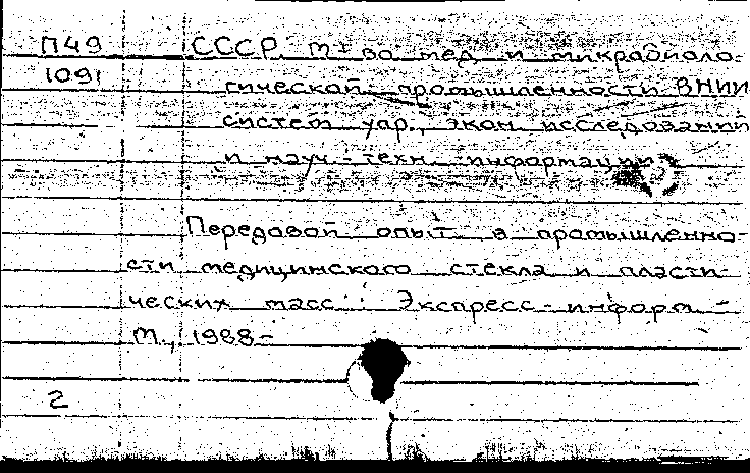 П49 СССР. М-во мед. и микробиоло-
1091 гической промышленности. ВНИИ
систем упр., экон. исследований
и науч.-техн. информации
Передовой опыт в промышленно-
сти медицинского стекла и пласти-
ческих масс : Экспресс-информ. -
М., 1988-
2